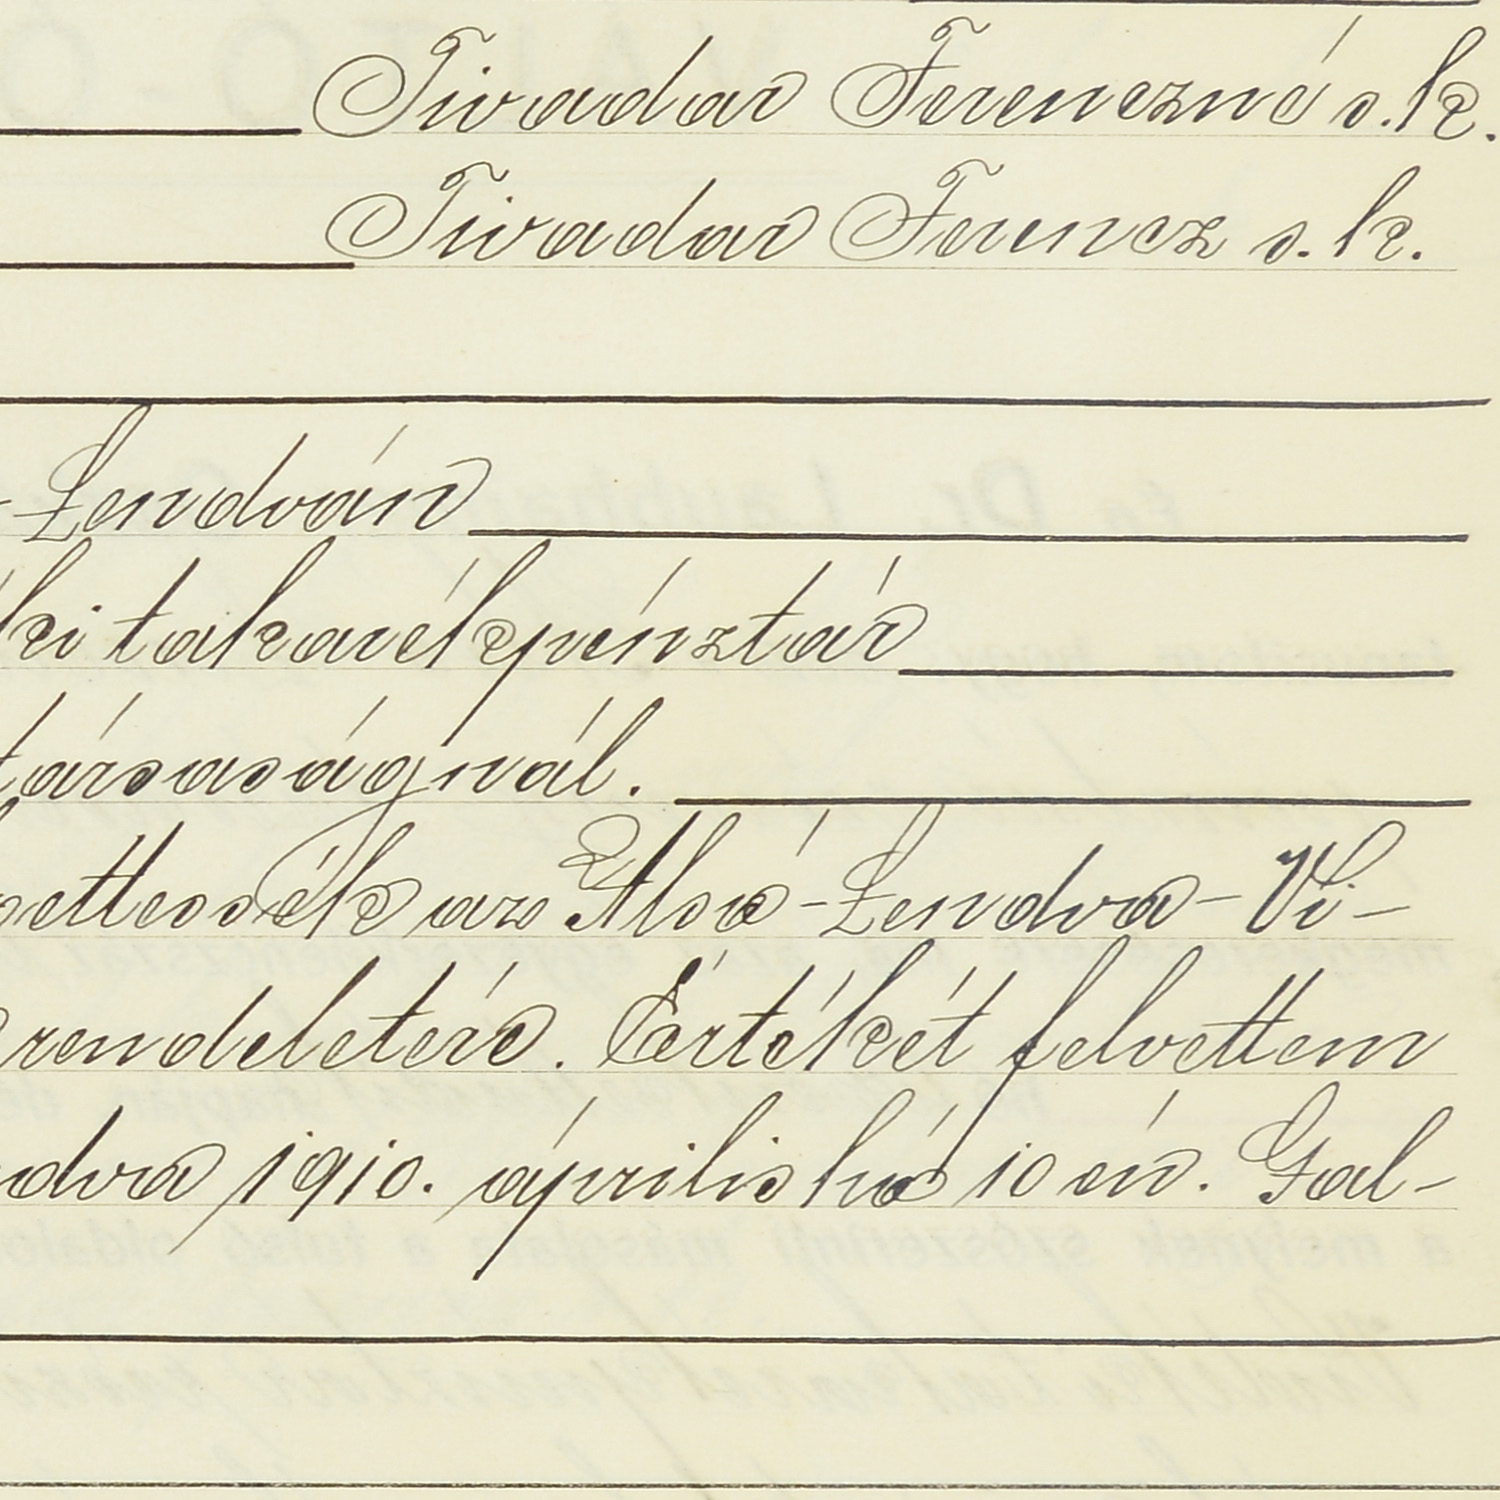 Tivadar Ferenczné s. k.
Tivadar Ferencz s. k.
-Lendván
ki takarékpénztár
társaságnál.
az Alsó-Lendva-Vi-
rendeletére. Értékét felvettem
dva 1910. április hó 10 én. Gal-